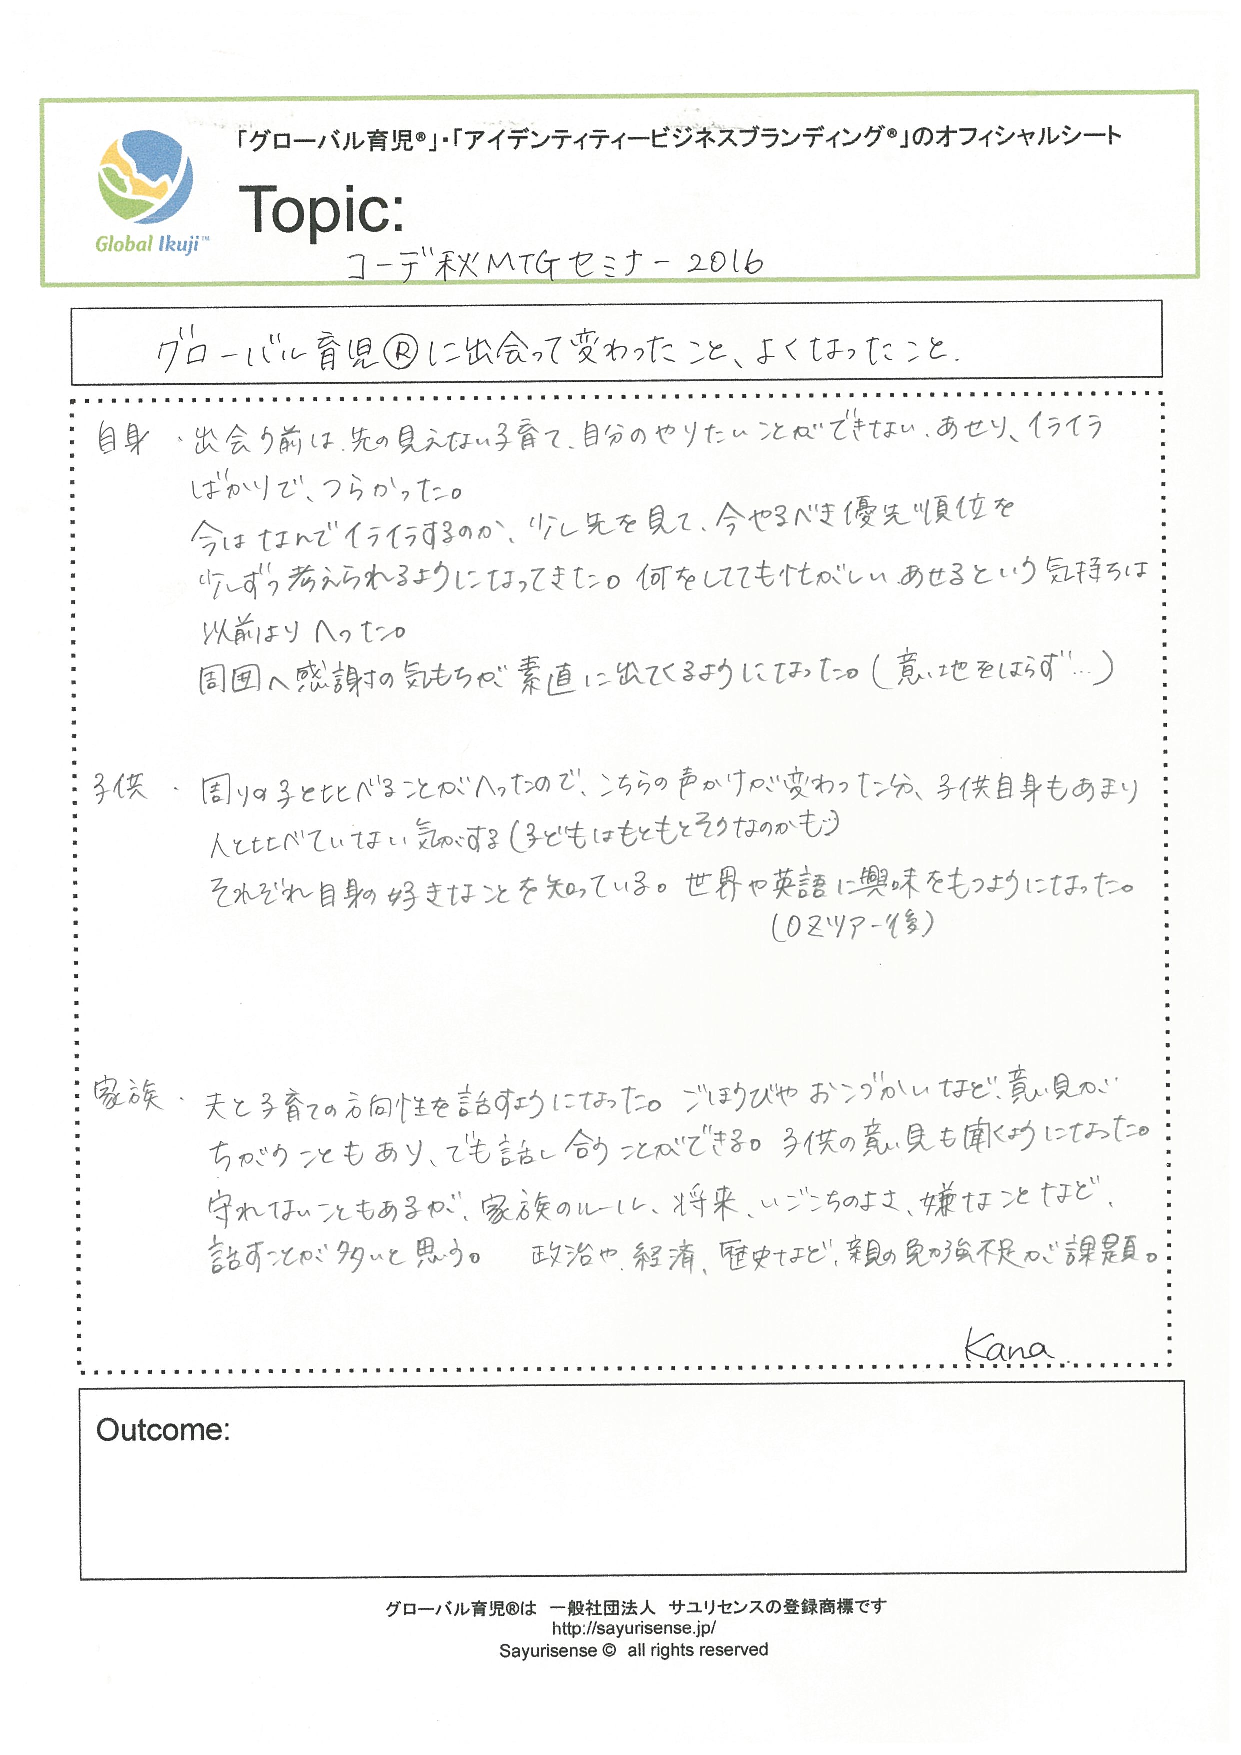 「グローバル育児®」・「アイデンティティービジネスブランディング®」のオフィシャルシート
Global Ikuji™
Topic:
コーデ秋MTGセミナー2016
グローバル育児®に出会って変わったこと、よくなったこと.
自身 ・出会う前は、先の見えない子育て、自分のやりたいことができない、あせり、イライラ
ばかりで、つらかった。
今はなんでイライラするのか、少し先を見て、今やるべき優先順位を
少しずつ考えられるようになってきた。何をしてても忙がしい、あせるという気持ちは
以前よりへった。
周囲へ感謝の気もちが素直に出てくるようになった。(意地をはらず…)
子供 ・ 周りの子と比べることがへったので、こちらの声かけが変わった分、子供自身もあまり
人と比べていない気がする(子どもはもともとそうなのかも…)
それぞれ自身の好きなことを知っている。世界や英語に興味をもつようになった。
(OZツアー後)
家族 ・ 夫と子育ての方向性を話すようになった。ごほうびやおこづかいなど、意見が
ちがうこともあり、でも話し合うことができる。子供の意見も聞くようになった。
守れないこともあるが、家族のルール、将来、いごこちのよさ、嫌なことなど、
話すことが多いと思う。 政治や、経済、歴史など、親の勉強不足が課題。
Kana
Outcome:
グローバル育児®は 一般社団法人 サユリセンスの登録商標です
http://sayurisense.jp/
Sayurisense © all rights reserved